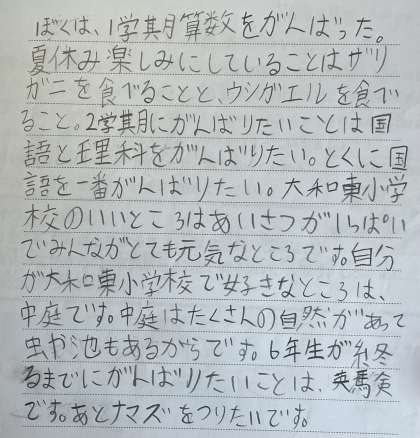 ぼくは、1学期算数をがんばった。
夏休み楽しみにしていることはザリ
ガニを食べることと、ウシガエルを食べ
ること。2学期にがんばりたいことは国
語と理科をがんばりたい。とくに国
語を一番がんばりたい。大和東小学
校のいいところはあいさつがいっぱい
でみんながとても元気なところです。自分
が大和東小学校で好きなところは、
中庭です。中庭はたくさんの自然があって
虫や池もあるからです。6年生が終
るまでにがんばりたいことは、英検
です。あとナマズをつりたいです。